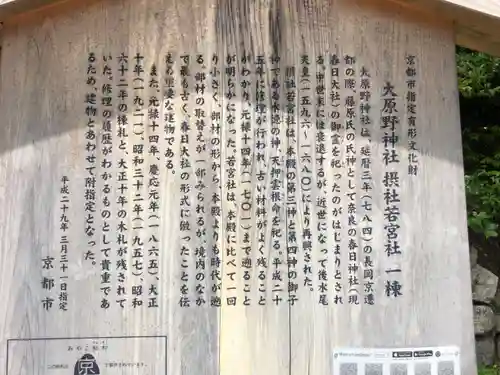 京都市指定有形文化財
大原野神社 摂社若宮社 一棟
大原野神社は、延暦三年(七八四)の長岡京遷
都の際、藤原氏の氏神として奈良の春日神社(現
春日大社)の御霊を祀ったのがはじまりとされ
る。中世末には衰退するが、近世になって後水尾
天皇(一五九六~一六八〇)により再興された。
摂社若宮社は、本殿の第三神と第四神の御子
神である水徳の神、天押雲根命を祀る。平成二十
五年に修理が行われ、古い材料がよく残ること
がわかり、元禄十四年(一七〇一)まで遡ること
が明らかになった。若宮社は、本殿に比べて一回
り小さく、部材の形から、本殿よりも時代が遡
る。部材の取替えが一部みられるが、境内のなか
で最も古く、春日大社の形式に倣ったことを伝
える重要な建物である。
また、元禄十四年、慶応元年(一八六五)、大正
十年(一九二一)、昭和三十二年(一九五七)、昭和
六十二年の棟札と、大正十年の木札が残されて
いた。修理の履歴がわかるものとして貴重であ
るため、建物とあわせて附指定となった。
平成二十九年三月三十一日指定
京都市
京